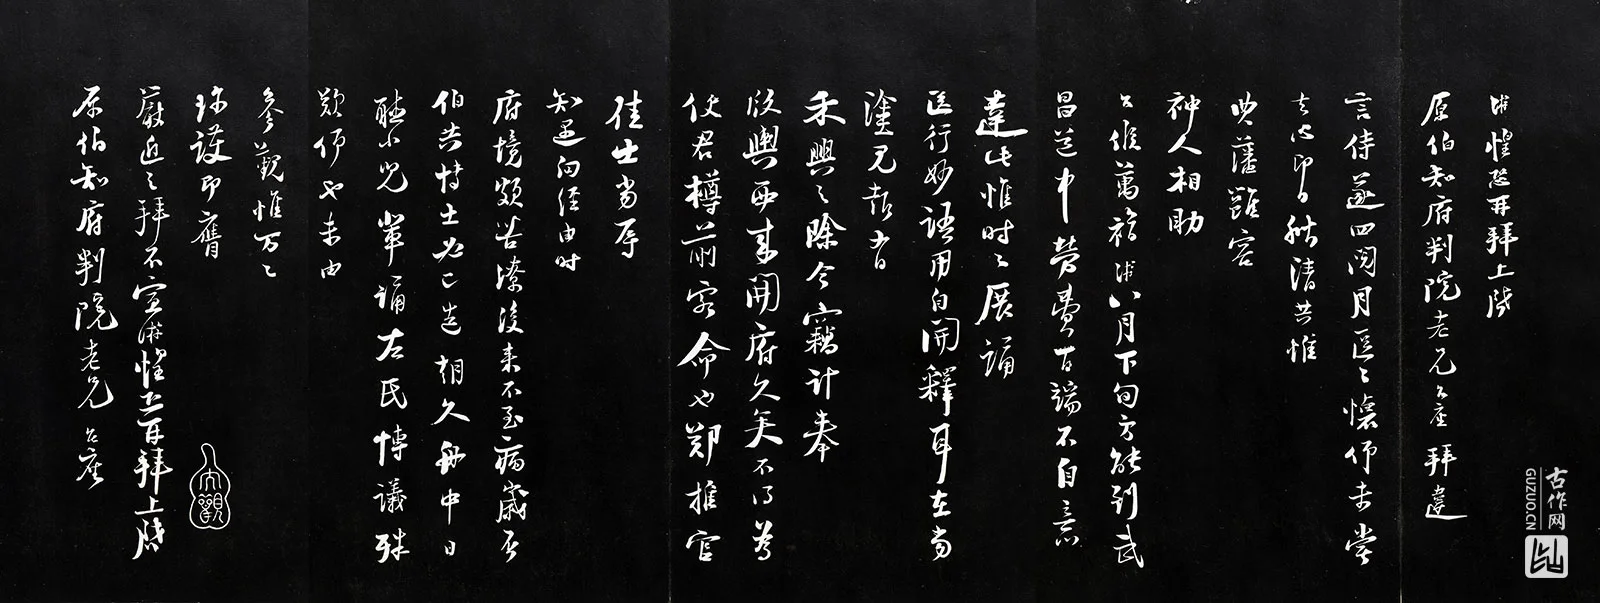 惶恐再拜上啓
原伯知府判院老兄台座拜違
言侍遂四閱月區區懷仰未嘗
去心即日秋清共惟
典藩雖容
神人相助
台候萬福 八月下旬方能到武
昌道中勞費百端不自意
達此惟時時展誦
送行妙語用自開釋耳在當
塗見報有
禾興之除今竊計奉
版輿西來開府久矣不得為
使君樽前客命也鄭推官
佳士當辱
知遇向經由時
府境頗苦潦後來不至病歲否
伯共博士必已造朝久舟中日
聽小兒輩誦左氏博議殊
歎仰也未由
參覲惟萬萬
珍護即膺
嚴近之拜不宣 惶恐再拜上啓
原伯知府判院老兄台座
大觀
古作网
GUZUO.CN